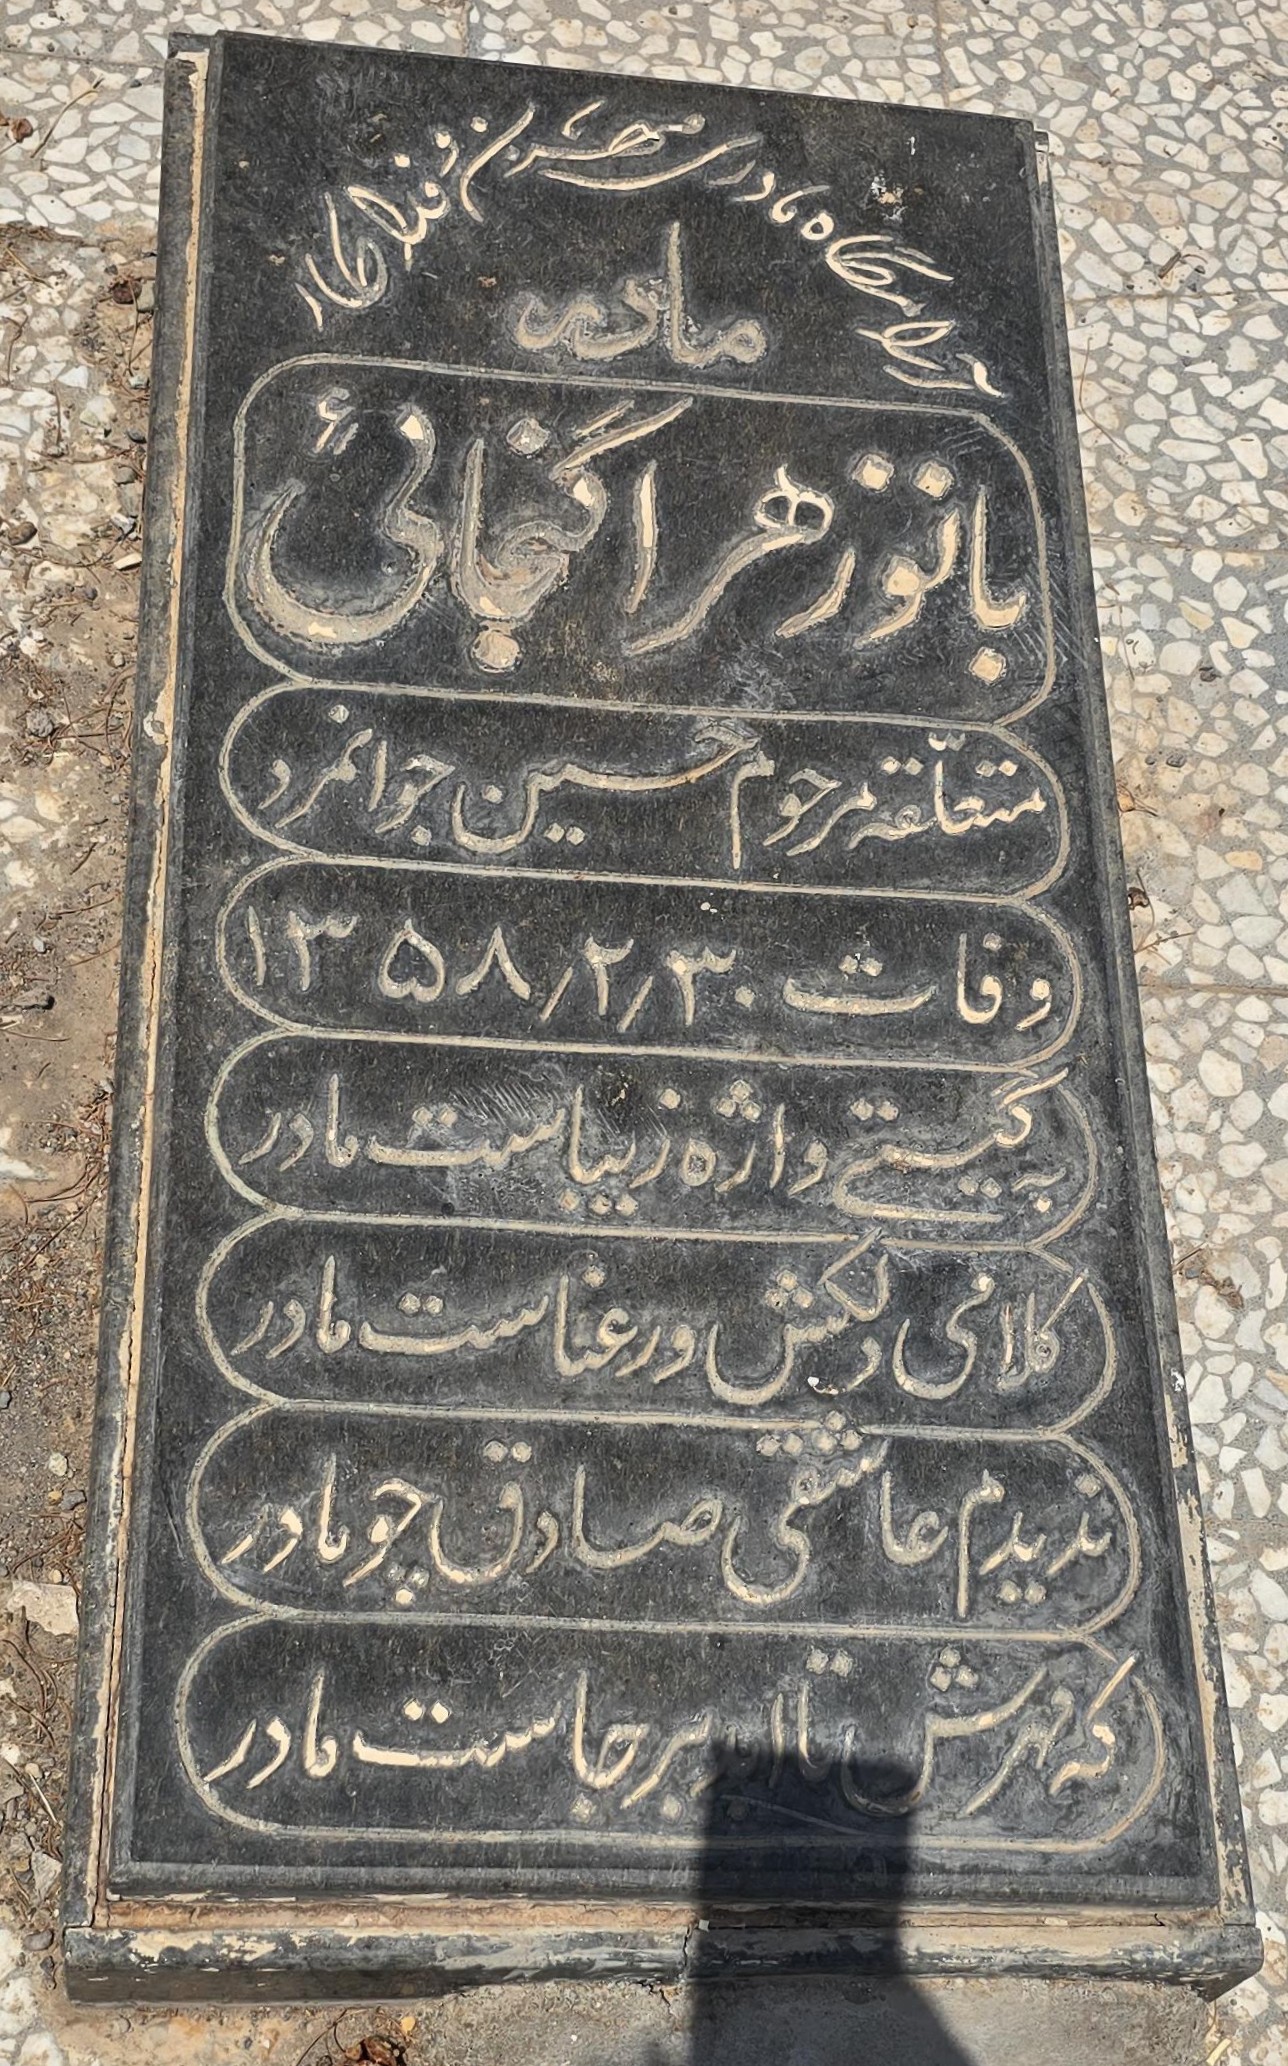 آرامگاه مادری مهربان و فداکار
مادر
بانو زهرا گنجائی
متعلقه مرحوم حسین جوانمرد
وفات ۱۳۵۸/۲/۳۰
به گیتی واژه زیباست مادر
کلامی دلکش و رعناست مادر
ندیدم عاشقی صادق چو مادر
که مهرش تا ابد برجاست مادر